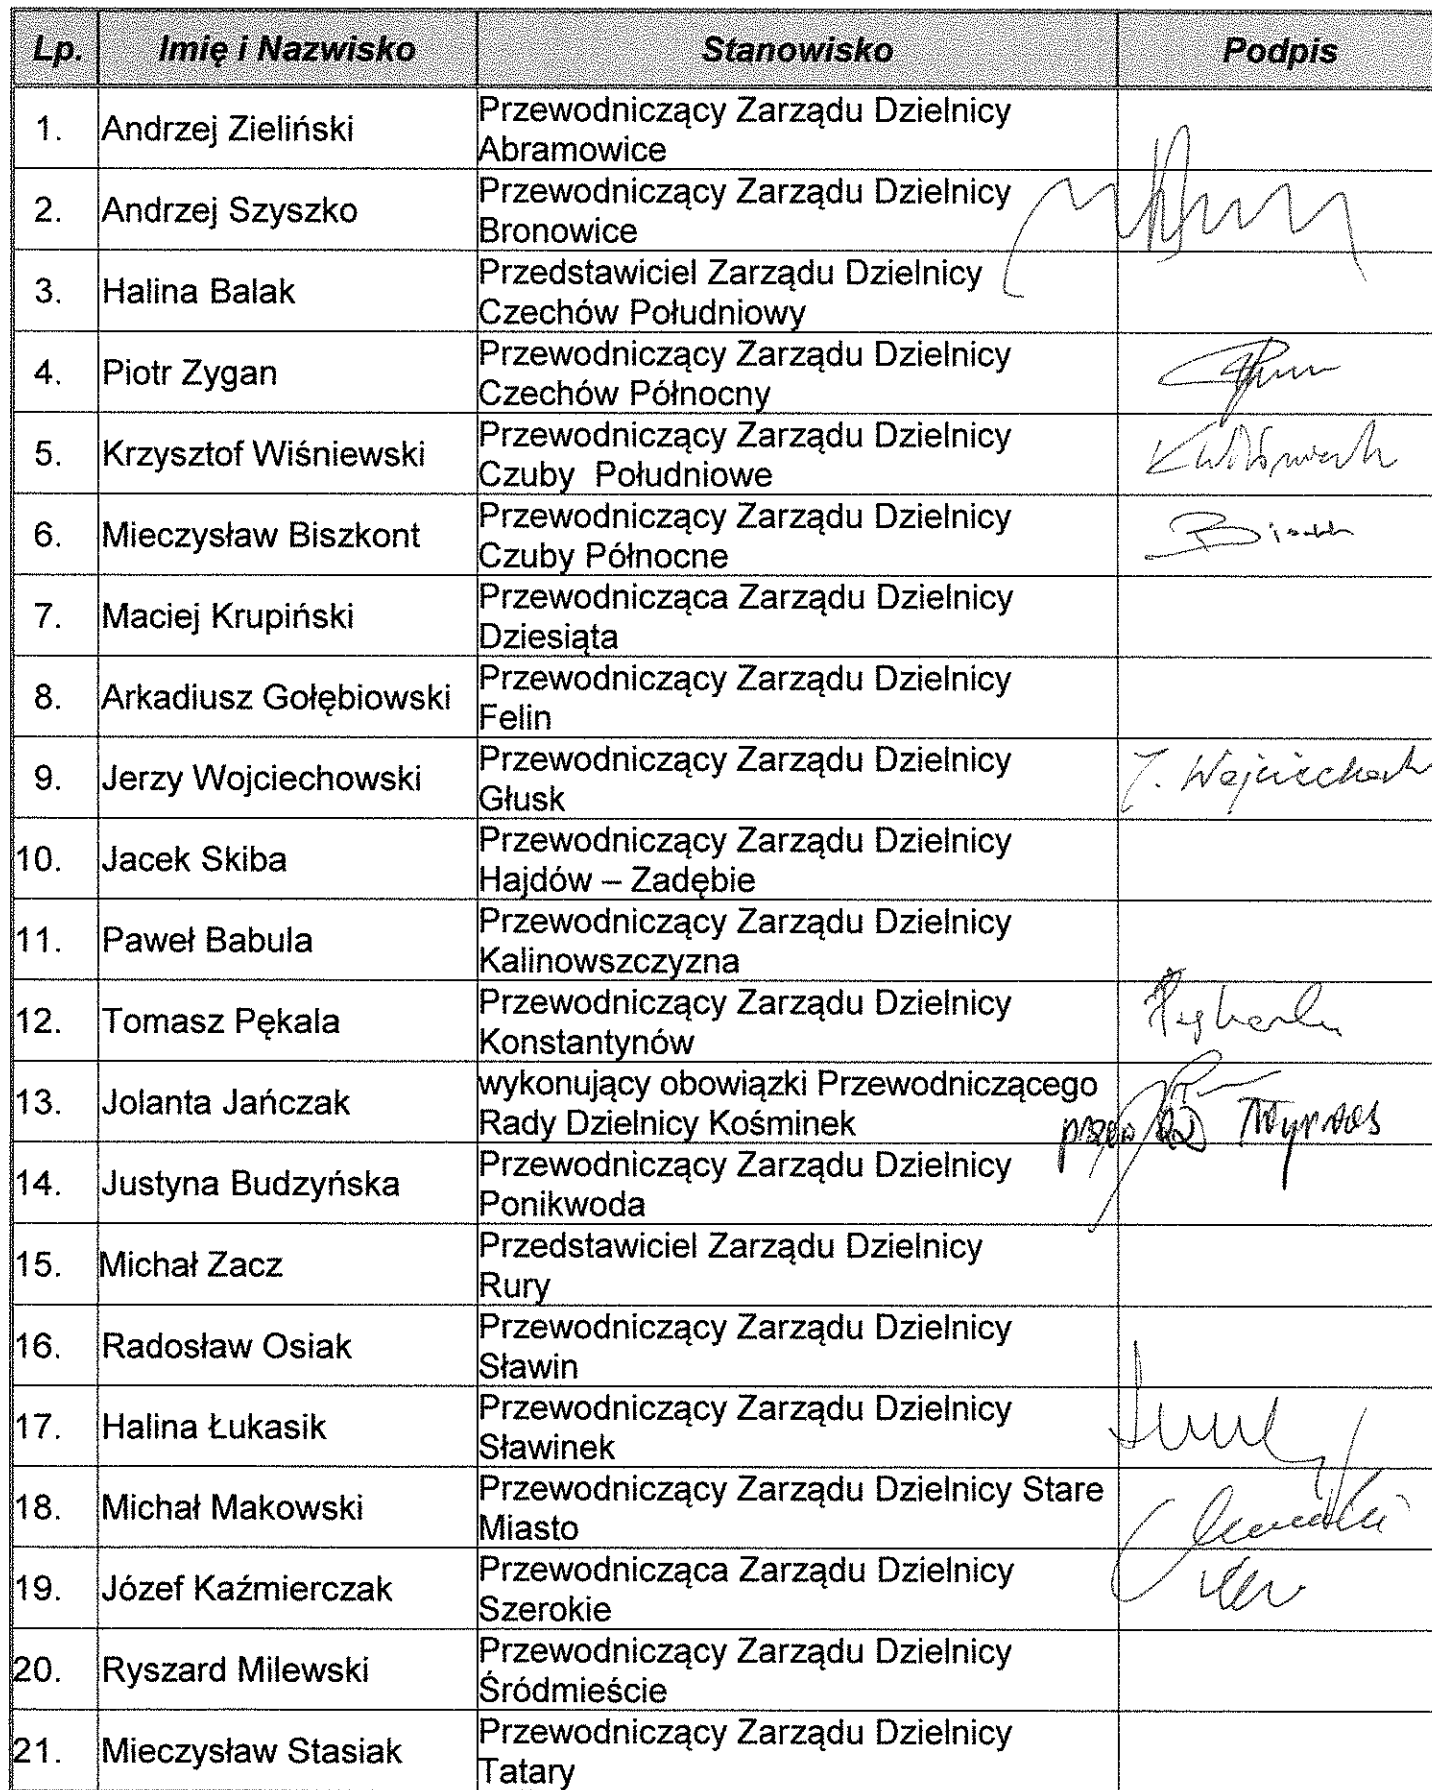 Lp. Imię i Nazwisko Stanowisko Podpis
1. Andrzej Zieliński Przewodniczący Zarządu Dzielnicy
Abramowice
2. Andrzej Szyszko Przewodniczący Zarządu Dzielnicy
Bronowice
3. Halina Balak Przedstawiciel Zarządu Dzielnicy
Czechów Południowy
4. Piotr Zygan Przewodniczący Zarządu Dzielnicy
Czechów Północny
5. Krzysztof Wiśniewski Przewodniczący Zarządu Dzielnicy
Czuby Południowe
6. Mieczysław Biszkont Przewodniczący Zarządu Dzielnicy
Czuby Północne
7. Maciej Krupiński Przewodnicząca Zarządu Dzielnicy
Dziesiąta
8. Arkadiusz Gołębiowski Przewodniczący Zarządu Dzielnicy
Felin
9. Jerzy Wojciechowski Przewodniczący Zarządu Dzielnicy
Głusk
10. Jacek Skiba Przewodniczący Zarządu Dzielnicy
Hajdów – Zadębie
11. Paweł Babula Przewodniczący Zarządu Dzielnicy
Kalinowszczyzna
12. Tomasz Pękala Przewodniczący Zarządu Dzielnicy
Konstantynów
13. Jolanta Jańczak wykonujący obowiązki Przewodniczącego
Rady Dzielnicy Kośminek
14. Justyna Budzyńska Przewodniczący Zarządu Dzielnicy
Ponikwoda
15. Michał Zacz Przedstawiciel Zarządu Dzielnicy
Rury
16. Radosław Osiak Przewodniczący Zarządu Dzielnicy
Sławin
17. Halina Łukasik Przewodniczący Zarządu Dzielnicy
Sławinek
18. Michał Makowski Przewodniczący Zarządu Dzielnicy Stare
Miasto
19. Józef Kaźmierczak Przewodnicząca Zarządu Dzielnicy
Szerokie
20. Ryszard Milewski Przewodniczący Zarządu Dzielnicy
Śródmieście
21. Mieczysław Stasiak Przewodniczący Zarządu Dzielnicy
Tatary